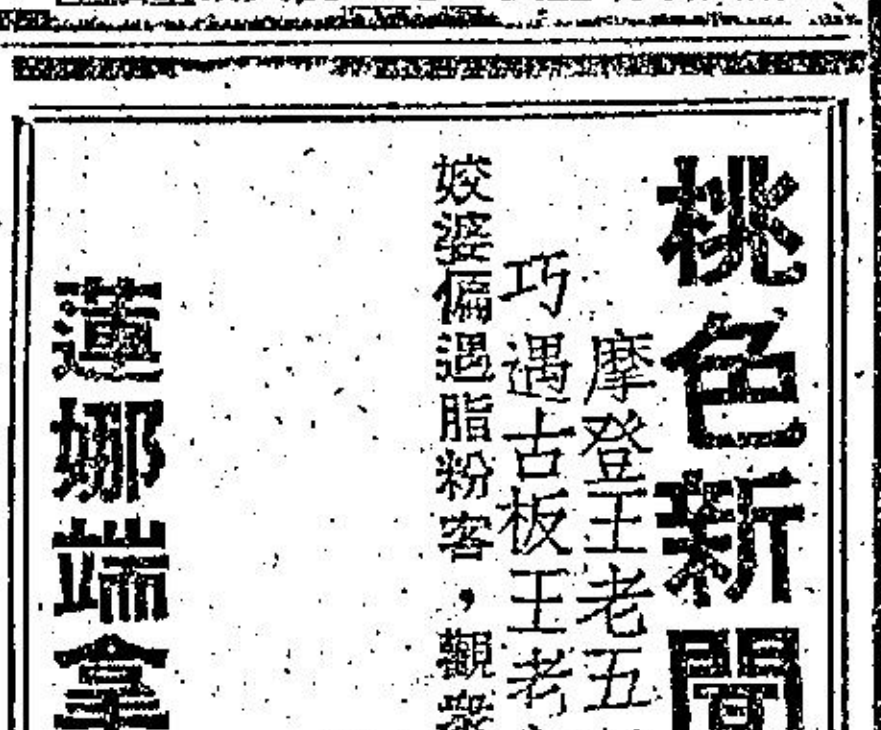 桃色新聞
摩登王老五
巧遇古板王老
姣婆偏遇脂粉客，觀眾
蓮娜端拿